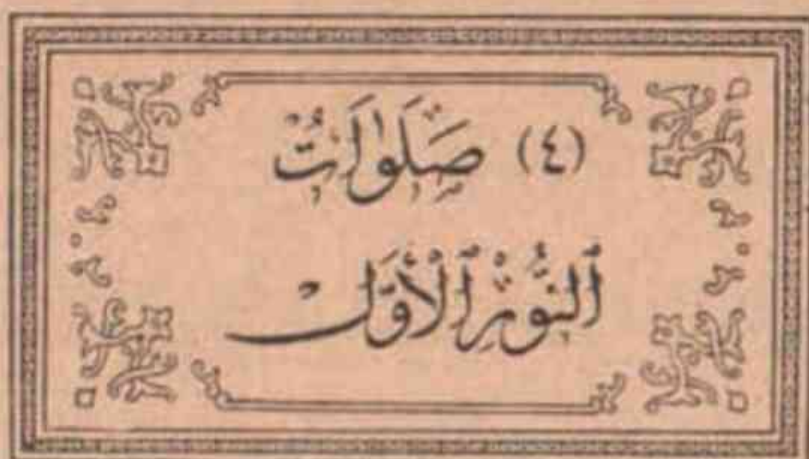 (٤) صَلَوٰاتُ
ٱلنُّوْرِ ٱلْأَوَّلِ